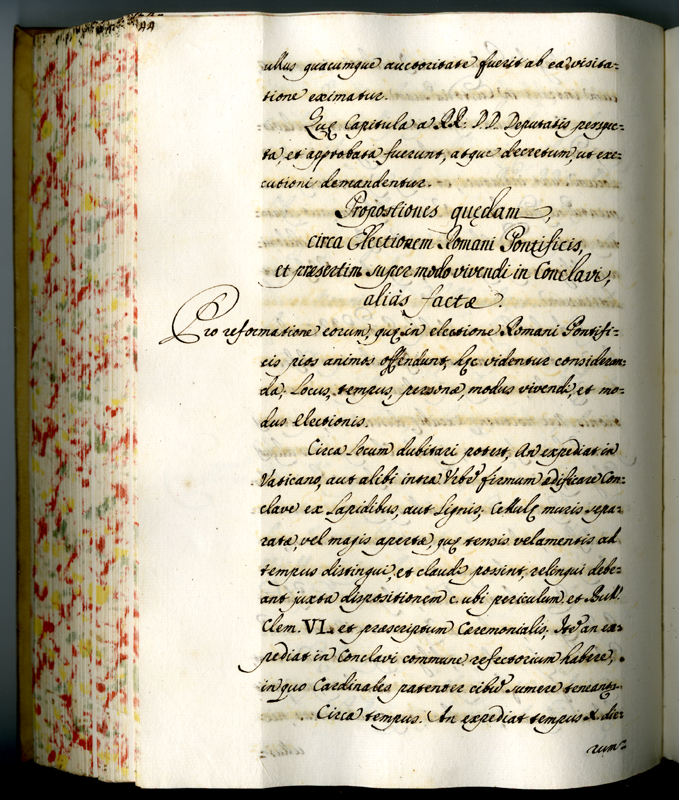 ullus quacumque auctoritate fuerit ab ea visita-
tione eximatur.
Quę Capitula a RR: D.D. Deputatis perspec-
ta, et approbata fuerunt, atque decretum, ut exe-
cutioni demandentur.
Propositiones quędam,
circa Electionem Romani Pontificis,
et præsertim super modo vivendi in Conclavi,
alias factæ.
Pro reformatione eorum, quę in electione Romani Pontifi-
cis pios animos offendunt, hęc videntur consideran-
da. Locus, tempus, personæ, modus vivendi, et mo-
dus electionis.
Circa locum dubitari potest, An expediat in
Vaticano, aut alibi intra Urbē firmum ędificare Con-
clave ex Lapidibus, aut Lignis; Cellulę muris sepa-
ratæ, vel magis apertæ, quę tensis velamentis ad
tempus distingui, et claudi possint, relinqui debe-
ant juxta dispositionem c. ubi periculum et Bull.
Clem. VI. et præscriptum Ceremonialis. Itē an ex-
pediat in Conclavi commune refectorium habere,
in quo Cardinales patenter cibū sumere teneantr.
Circa tempus. An expediat tempus X. die-
rum